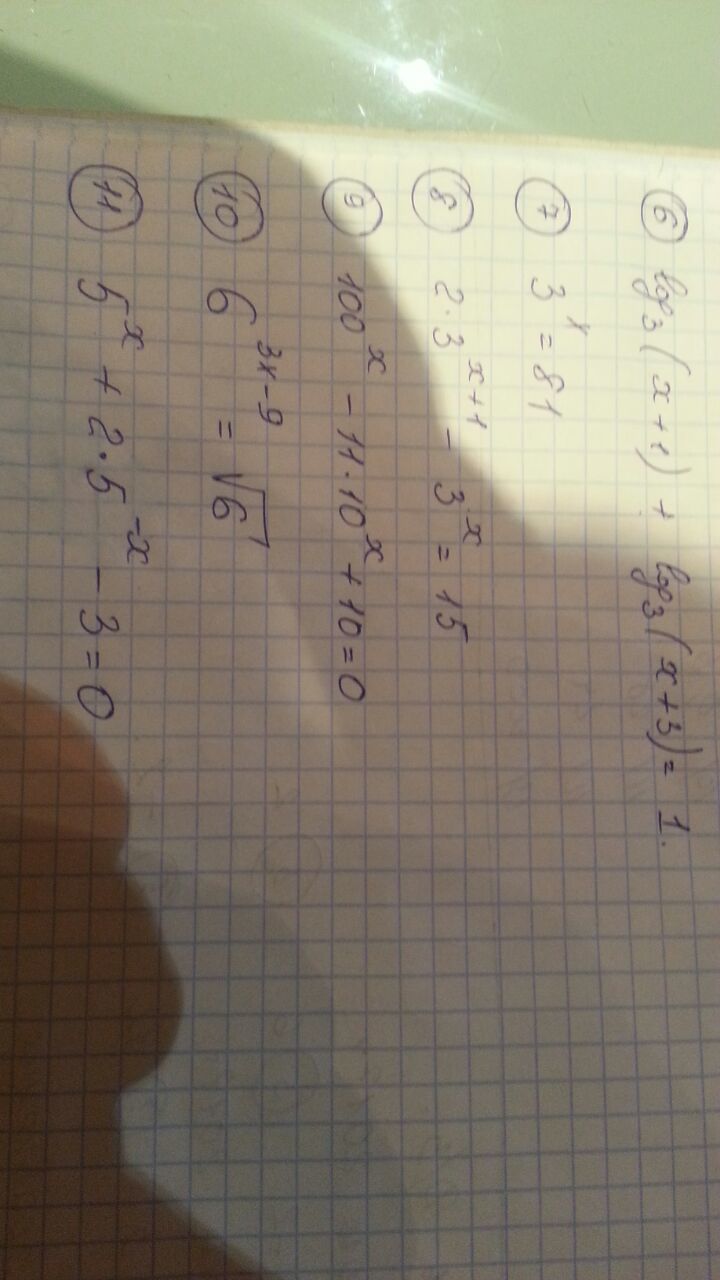 ⑥ log₃(x+1) + log₃(x+3) = 1.
⑦ 3ˣ = 81
⑧ 2·3ˣ⁺¹ - 3ˣ = 15
⑨ 100ˣ - 11·10ˣ + 10 = 0
⑩ 6³ˣ⁻⁹ = √6
⑪ 5ˣ + 2·5⁻ˣ - 3 = 0